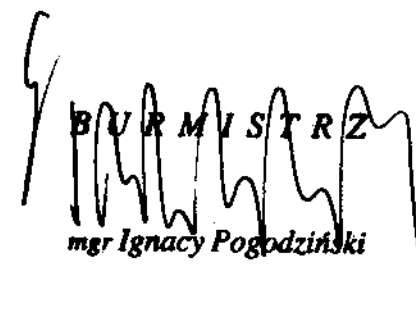 B U R M I S T R Z
mgr Ignacy Pogodziński